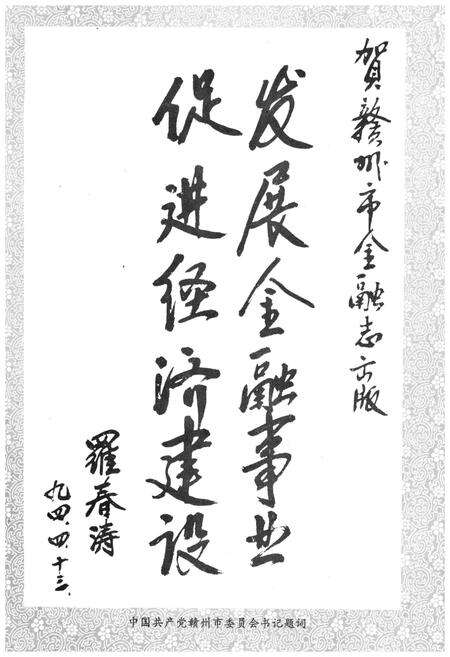 賀赣州市金融志出版
发展金融事业
促进经济建设
羅春涛
九四.四.十三.
中国共产党赣州市委员会书记题词